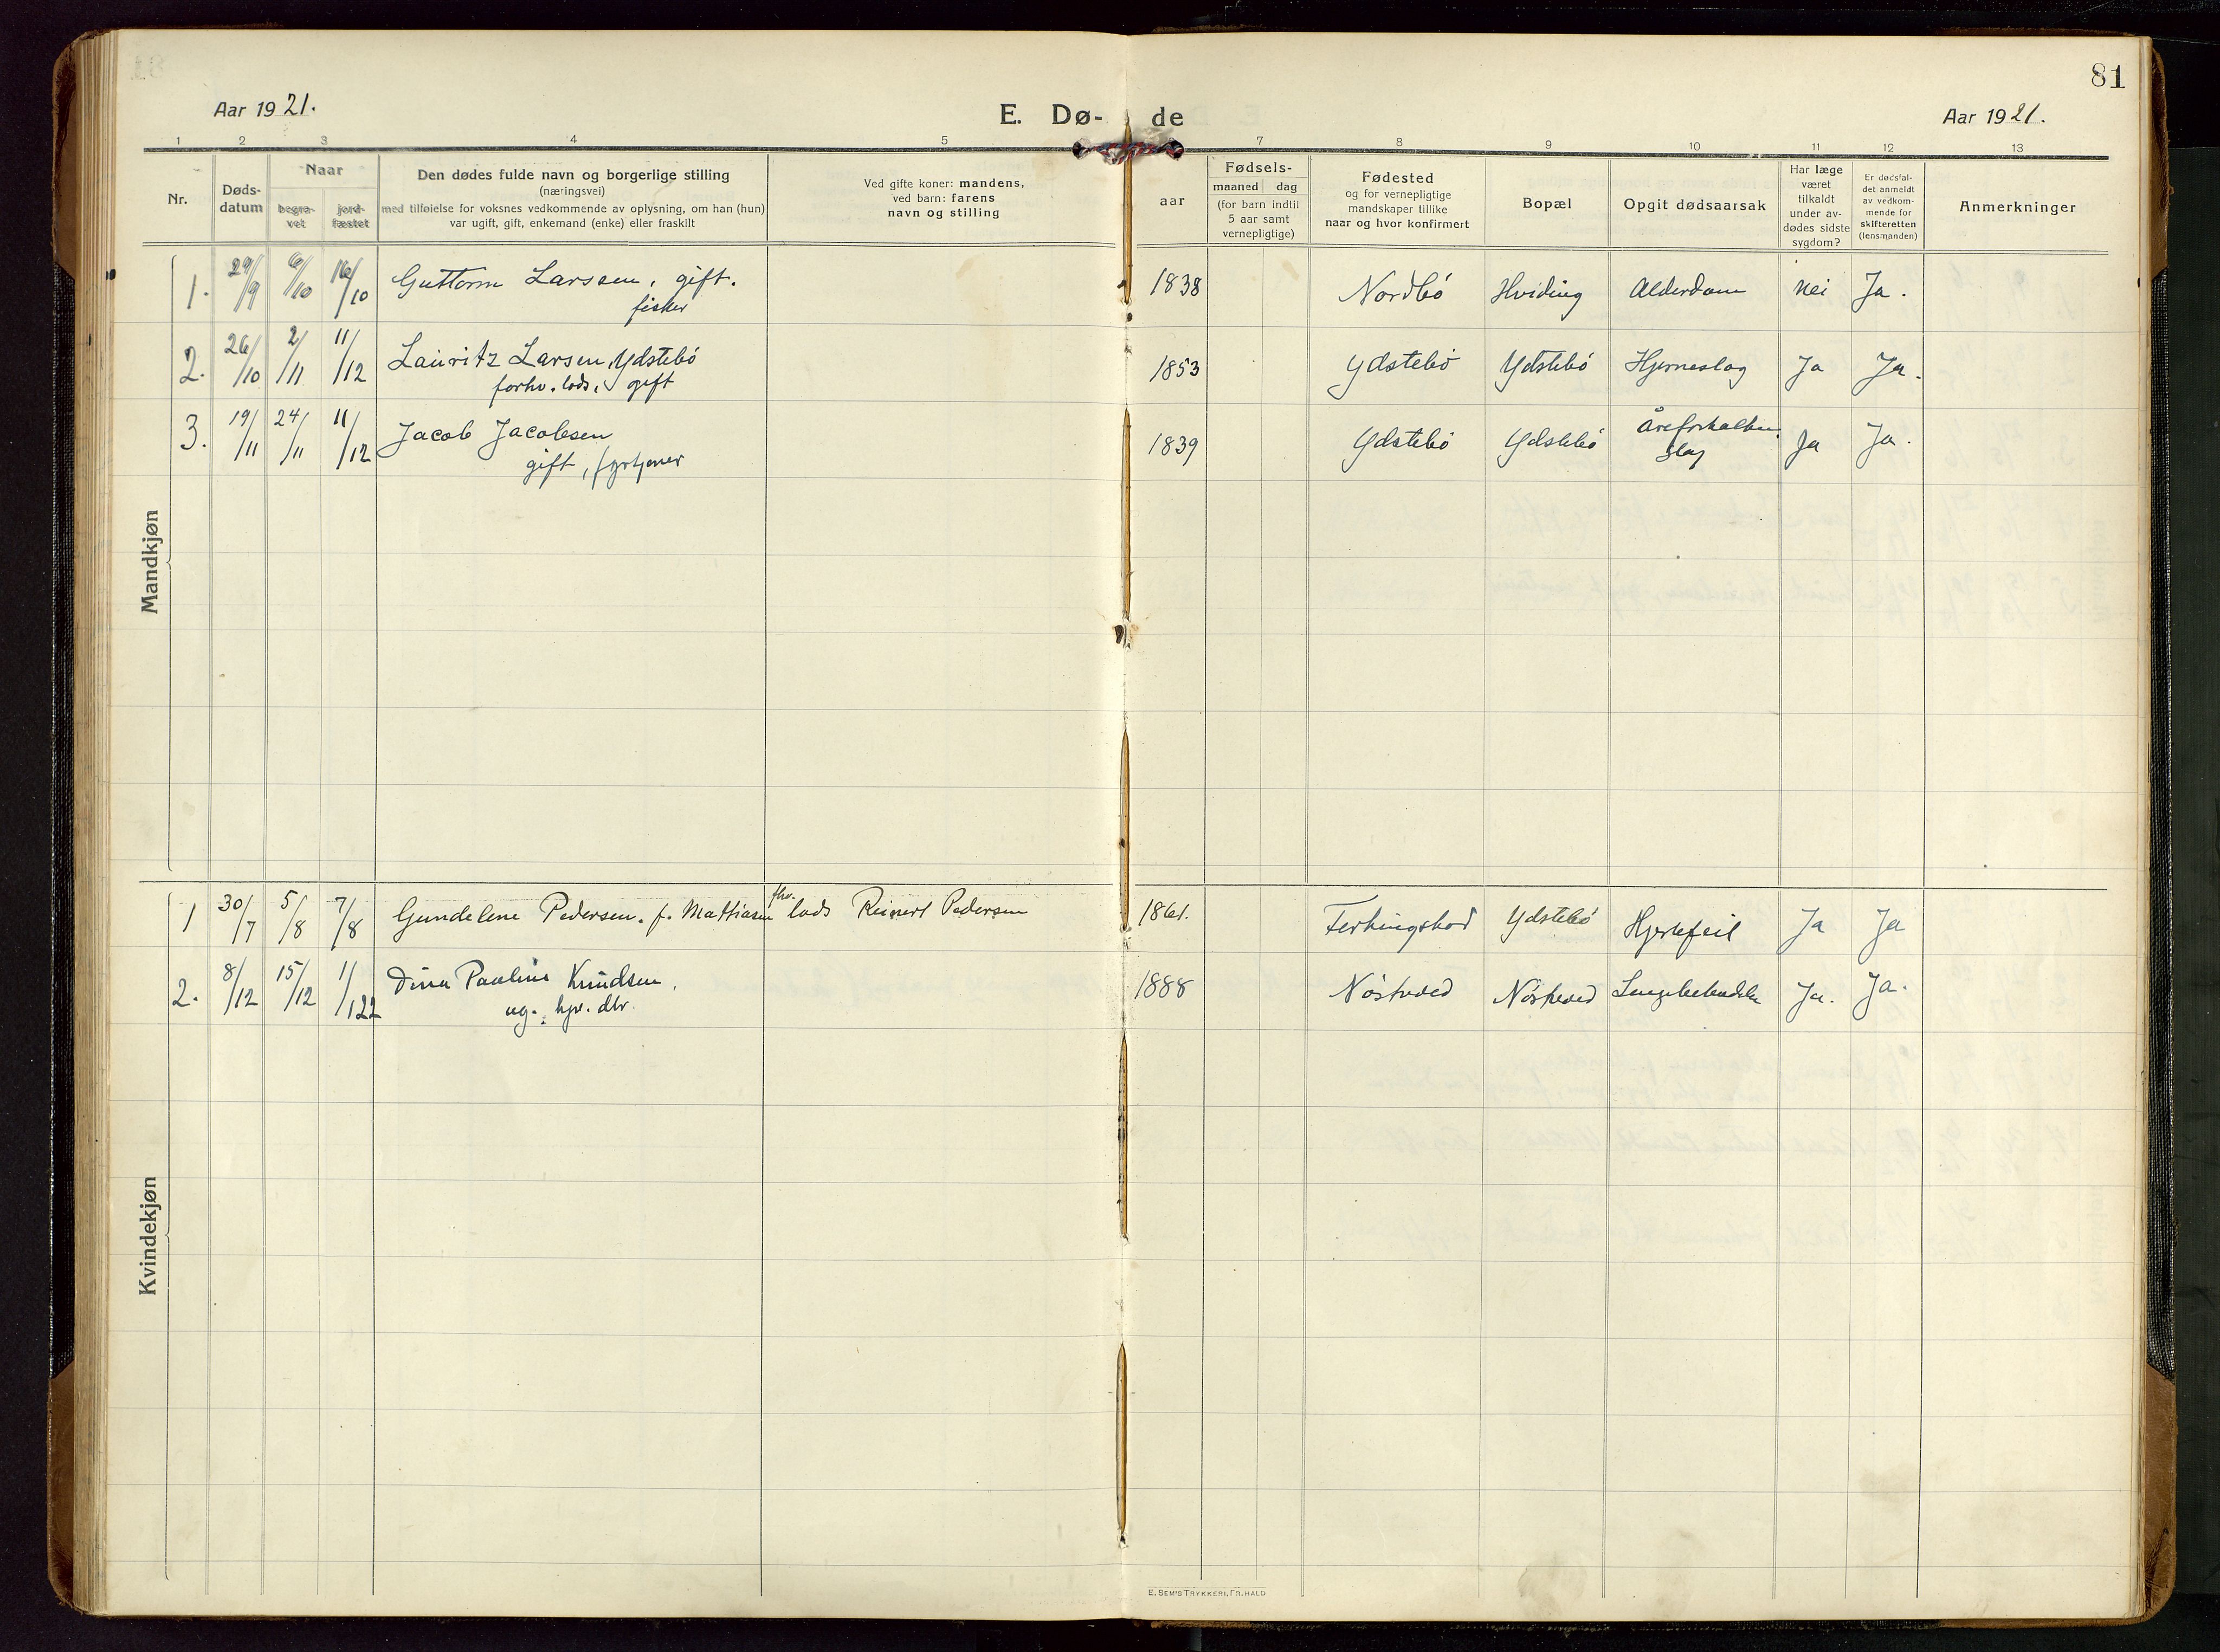 81
Aar 1921.
E. Dø- de
Aar 1921.
1 2 3 4 5 7 8 9 10 11 12 13
Nr.
Døds-
datum
Naar
begra-
vet
jord-
fæstet
Den dødes fulde navn og borgerlige stilling
(næringsvei)
med tilføielse for voksnes vedkommende av oplysning, om han (hun)
var ugift, gift, enkemand (enke) eller fraskilt
Ved gifte koner: mandens,
ved barn: farens
navn og stilling
aar
Fødsels-
maaned dag
(for barn indtil
5 aar samt
vernepligtige)
Fødested
og for vernepligtige
mandskaper tillike
naar og hvor konfirmert
Bopæl
Opgit dødsaarsak
Har læge
været
tilkaldt
under av-
dødes sidste
sygdom?
Er dødsfal-
det anmeldt
av vedkom-
mende for
skifteretten
(lensmanden)
Anmerkninger
Mandkjøn
1. 29/9 6/10 16/10 Guttorm Larssen, gift. 1838 Nordbö Hviding Alderdom Nei Ja.
fisker
2. 26/10 2/11 11/12 Lauritz Larsen Ydstebö 1853 Ydstebö Ydstebö Hjerneslag Ja Ja.
forhv. lods, gift
3. 19/11 24/11 11/12 Jacob Jacobsen 1839 Ydstebö Ydstebö Ja Ja.
gift, fyrtjener slag
Kvindekjøn
1 30/7 5/8 7/8 Gundeline Pedersen. f. Mattiasen fhv. lods Reinert Pedersen 1861. Ydstebö Hjertefeil Ja Ja
2. 8/12 15/12 1/122 Dina Pauline Knudsen, 1888 Nöstved Nöstved Ja. Ja.
ug.
E. SEM'S TRYKKERI, FR.HALD